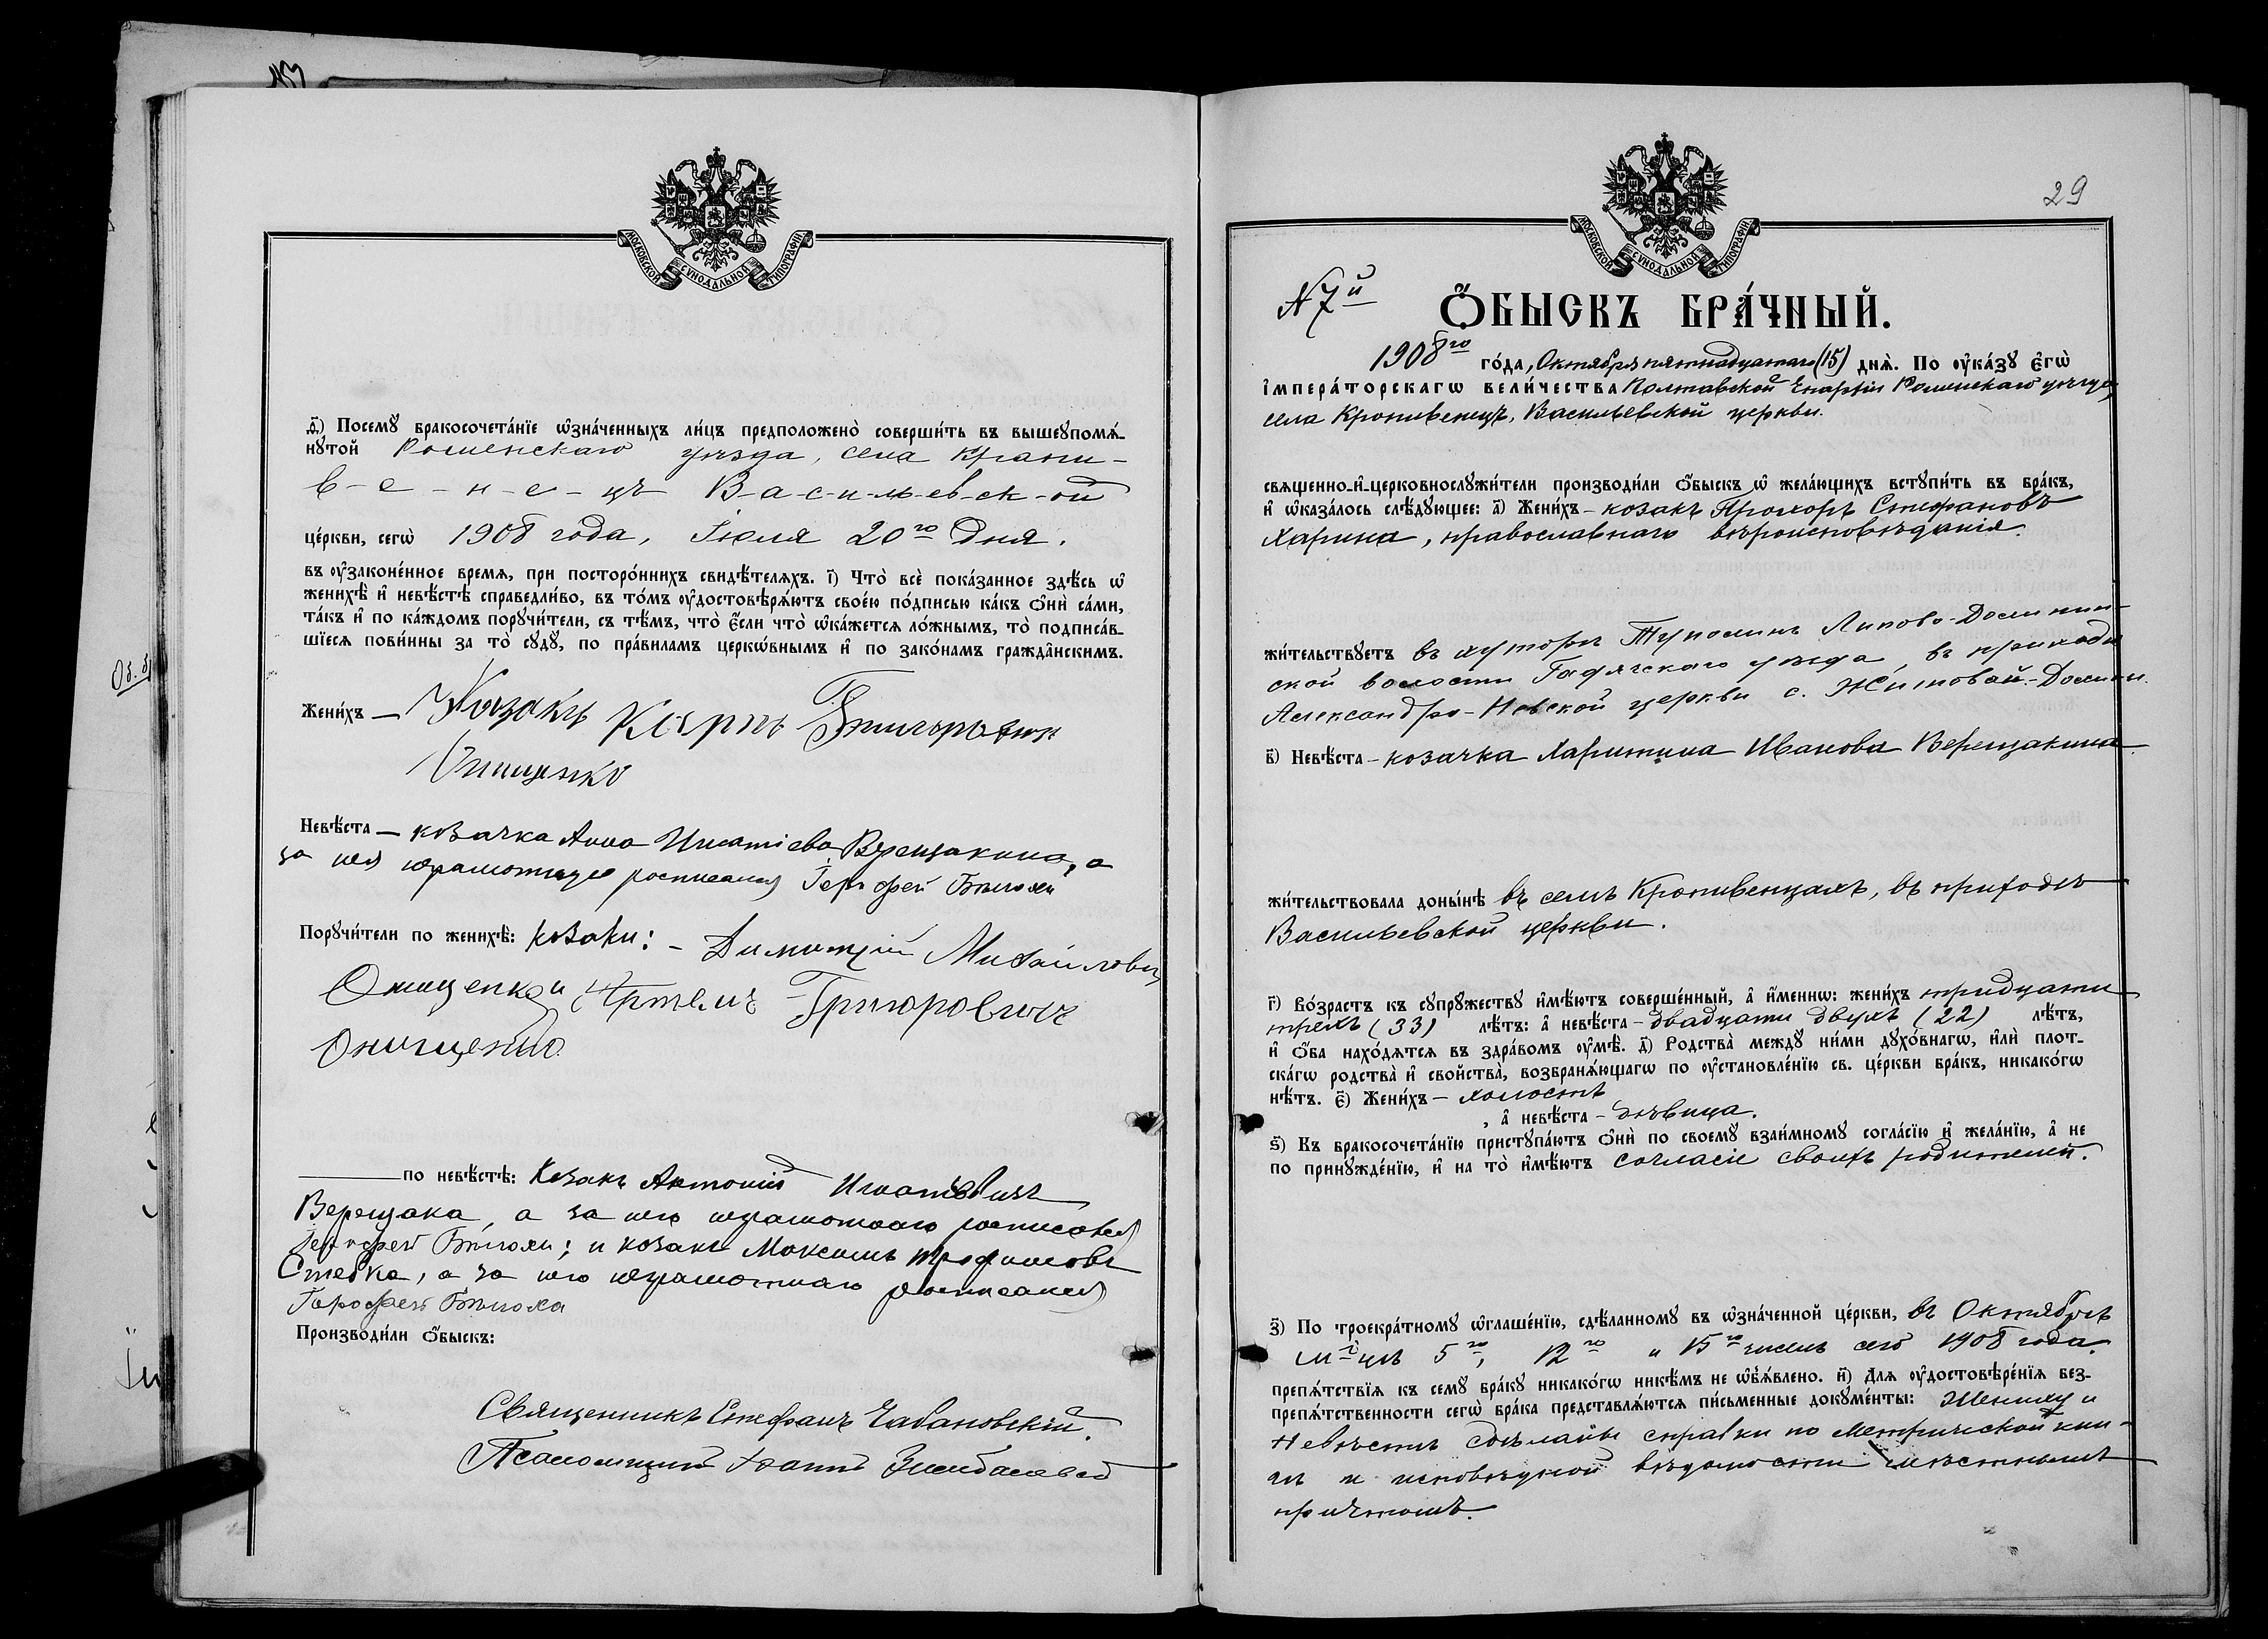 МОСКОВСКОЙ СУНОДАЛЬНОЙ ТИПОГРАФІИ
д҃і) Посемꙋ бракосочета́нїе ѡ҆зна́ченныхъ ли́цъ предположено̀ соверши́ть въ вышеꙋпомѧ́-
нꙋтой Роменскаго уѣзда, села Крапи-
в-е-н-е-цъ В-а-с-и-ль-ев-ск-ой
це́ркви, сегѡ̀ 1908 года, Іюля 20го дня.
въ ᲂу҆законе́нное времѧ, при посторо́ннихъ свидѣ́телѧхъ. і҃) Что̀ всѐ пока́занное здѣ́сь ѡ҆
женихѣ̀ и҆ невѣ́стѣ справедли́во, въ то́мъ ᲂу҆достовѣрѧ́ютъ свое́ю по́дписью ка́къ ѻ҆нѝ са́ми,
та́къ и҆ по ка́ждомъ порꙋчи́тели, съ тѣ́мъ, что̀ є҆́сли что̀ ѡ҆ка́жется ло́жнымъ, то̀ подписа́в-
шїеся пови́нны за то̀ сꙋдꙋ̀, по пра́виламъ церкѡ́внымъ и҆ по зако́намъ гражда̂нскимъ.
Жени́хъ — Козакъ Карпъ Григорьевъ
Онищенко
Невѣ́ста — козачка Анна Игнатіева Верещакина, а
за нея неграмотную росписался
Порꙋчи́тели по женихѣ̀: козаки: - Димитрій Михайловъ
Онищенко и Артемъ Григоровичъ
Онищенко.
по невѣ́стѣ: Козакъ Антоній Игнатьевичъ
Верещака, а за него неграмотнаго росписался
и козакъ Максимъ Трофимовъ
Стебка, а за него неграмотнаго росписался
Производи́ли ѻ҆́быскъ:
Священникъ Стефанъ Чабановскій.
Псаломщикъ Іоаннъ
29
МОСКОВСКОЙ СУНОДАЛЬНОЙ ТИПОГРАФІИ
N 7й
Ѻ҆́БЫСКЪ БРА́ЧНЫЙ.
1908го го́да, Октября пятнадцатаго (15) днѧ̀. По ᲂу҆ка́зꙋ є҆гѡ̀
і҆мпера́торскагѡ вели́чества Полтавской Епархіи Роменскаго уѣзда,
села Кропивенецъ, Васильевской церкви.
свѧщенно-и҆-церковнослꙋжи́тели производи́ли ѻ҆́быскъ ѡ҆ жела́ющихъ встꙋпи́ть въ бра́къ,
и҆ ѡ҆каза́лось слѣ́дꙋющее: а҃) Жени́хъ - козакъ Прохоръ Стефановъ
Харина, православнаго вѣроисповѣданія.
жи́тельствꙋетъ въ хуторѣ Липово-Долин-
ской волости Гадячскаго уѣзда, въ приходѣ
Александро-Невской церкви с. Долины.
в҃) Невѣ́ста - козачка Харитина Иванова Верещакина.
жи́тельствовала доны́нѣ въ селѣ Кропивенцахъ, въ приходѣ
Васильевской церкви.
г҃) Во́зрастъ къ сꙋпрꙋжествꙋ и҆мѣ́ютъ соверше́нный, а҆ и҆́менню: жени́хъ тридцати
трехъ (33) лѣ́тъ: а҆ невѣ́ста - двадцати двухъ (22) лѣ́тъ,
и҆ ѻ҆́ба нахо́дѧтся въ здра́вомъ ᲂу҆мѣ̀. д҃) Родства̀ междꙋ ни́ми дꙋхо́внагѡ, и҆лѝ плот-
ска́гѡ родства̀ и҆ свойства̀, возбранѧ́ющагѡ по ᲂу҆становле́нїю св. це́ркви бра́къ, никако́гѡ
нѣ́тъ. є҃) Жени́хъ - холостъ
, а҆ невѣ́ста - дѣвица.
ѕ҃) Къ бракосочета́нїю пристꙋпа́ютъ ѻ҆нѝ по своемꙋ̀ взаи́мномꙋ согла́сїю и҆ жела́нїю, а҆ не
по принꙋжде́нїю, и҆ на то̀ и҆мѣ́ютъ согласіе своихъ родителей.
з҃) По троекра́тномꙋ ѡ҆глаше́нїю, сдѣ́ланномꙋ въ ѡ҆зна́ченной це́ркви, въ Октябрѣ
м-цѣ 5го, 12го и 15го числъ сего 1908 года.
препѧ́тствїѧ къ семꙋ̀ бра́кꙋ никако́гѡ никѣ́мъ не ѡ҆б̾ѧ́влено. и҃) Длѧ ᲂу҆достовѣре́нїѧ без-
препѧ́тственности сегѡ̀ бра́ка представлѧ́ются пи́сьменные докꙋме́нты: Жениху и
Невѣстѣ сдѣланы справки по Метрической кни-
гѣ и исповѣдной вѣдомости мѣстнымъ
причтомъ.